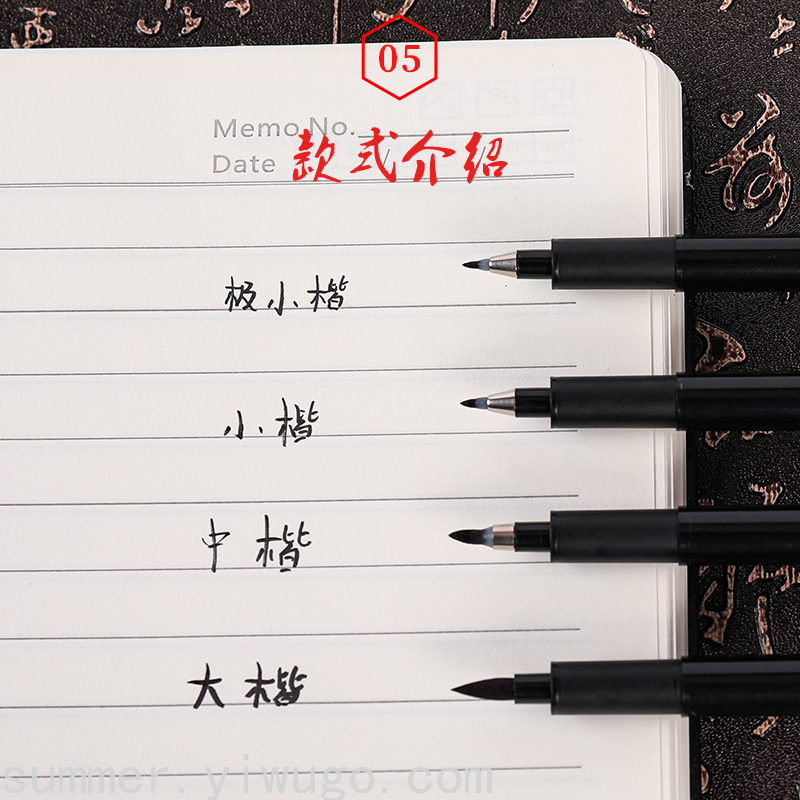 05
Memo No.
Date
款式介绍
极小楷
小楷
中楷
大楷
summer.yiwugo.com